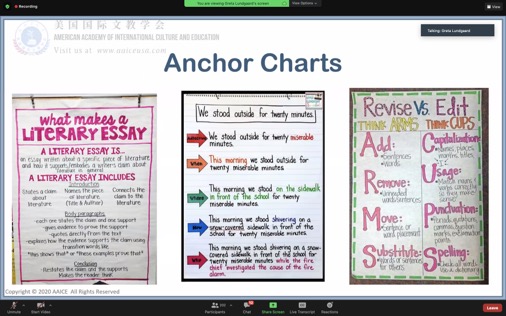 Recording
You are viewing Greta Lundgaard's screen
View Options
View
美国国际文教学会
AMERICAN ACADEMY OF INTERNATIONAL CULTURE AND EDUCATION
Visit us at www.aaiceusa.com
Talking: Greta Lundgaard
Anchor Charts
what makes a
LITERARY ESSAY
A LITERARY ESSAY IS...
an essay writes about a specific piece of literature
A LITERARY ESSAY INCLUDES
Introduction
States a claim about literature
Names the piece of literature (Title & Author)
Connects the claim to the literature
Body paragraphs
gives evidence to prove the support
quotes directly from the text
explains how evidence supports the claim using
transition words like
"this shows that" or "these examples prove that"
Conclusion
Restates the claim and supports
We stood outside for twenty minutes.
We stood outside for twenty miserable
minutes.
When
This morning we stood outside for
twenty miserable minutes.
Where
This morning we stood on the sidewalk
in front of the school for twenty
miserable minutes.
This morning we stood shivering on a
snow-covered sidewalk in front of the
school for twenty miserable minutes.
This morning we stood shivering on a snow-
covered sidewalk in front of the school for
twenty miserable minutes while the fire
chief investigated the cause of the fire
alarm.
Revise Vs. Edit
THINK ARMS
THINK CUPS
Add:
Sentences
words
Remove:
Unneeded
words/sentences
Move:
Sentence or
word placement
Substitute:
words or sentences
for others
Capitalization:
Usage:
Punctuation:
Spelling:
Copyright © 2020 AAICE All Rights Reserved
Unmute
Start Video
Participants
Chat
Share Screen
Live Transcript
Reactions
Leave